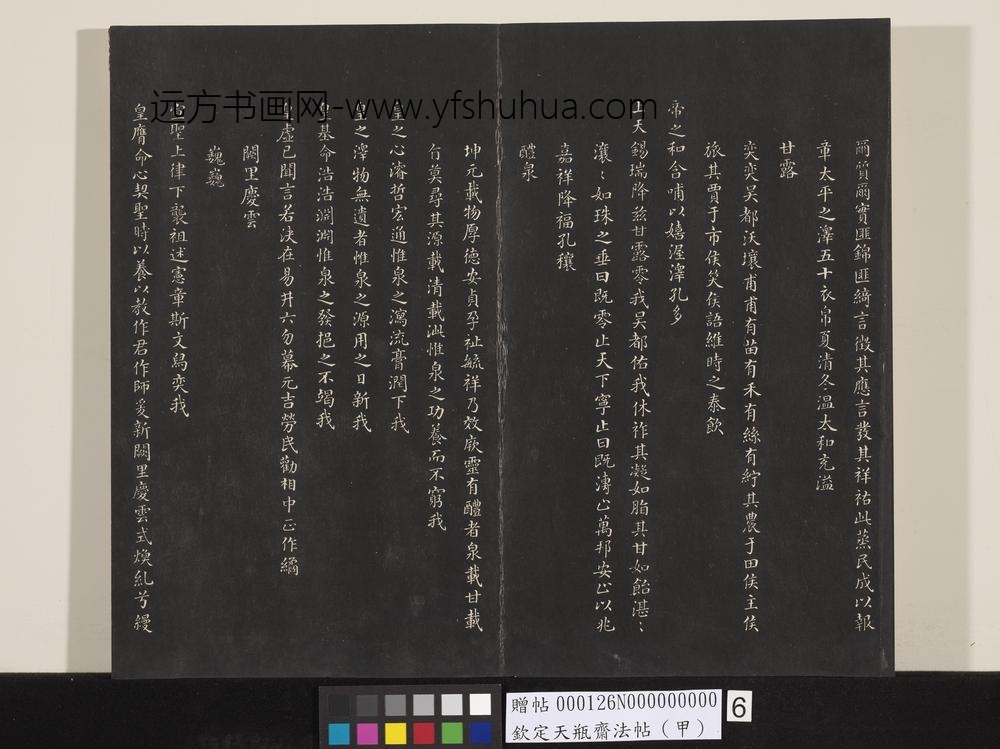 爾質爾實匪錦匪綺言徵其應言發其祥祜此蒸民成以報
章太平之澤五十衣帛夏清冬溫太和充溢
甘露
奕奕吴都沃壤甫甫有苗有禾有絲有紵其農于田侯主侯
旅其賈于市侯笑侯語維時之泰飲
帝之和含哺以嬉渥澤孔多
上天錫瑞降茲甘露零我吴都佑我休祚其凝如脂其甘如飴湛〻
瀼〻如珠之垂曰既零止天下寧止曰既漙止萬邦安止以兆
嘉祥降福孔穰
醴泉
坤元載物厚德安貞孕祉毓祥乃效厥靈有醴者泉載甘載
冽莫尋其源載清載泚惟泉之功養而不窮我
皇之心濬哲宏通惟泉之瀉流膏潤下我
皇之澤物無遺者惟泉之源用之日新我
皇基命浩浩淵淵惟泉之發挹之不竭我
皇虛已聞言若決在易井六勿幕元吉勞民勸相中正作繘
闕里慶雲
巍巍
聖上律下襲祖述憲章斯文烏奕我
皇膺命心契聖時以養以教作君作師爰新闕里慶雲式煥糺兮縵
远方书画网-www.yfshuhua.com
贈帖 000126N000000000
欽定天瓶齋法帖（甲）
6